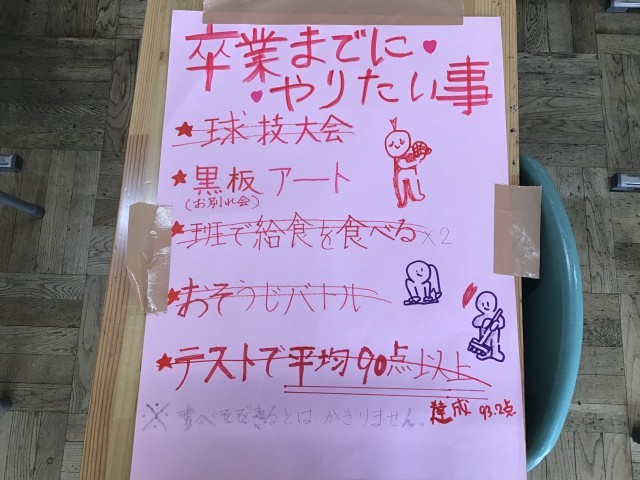 卒業までに
やりたい事
★球技大会
★黒板アート
(お別れ会)
★班で給食を食べる×2
★おそうじバトル
★テストで平均90点以上
達成 93.2点
※すべてを できるとは かぎりません。